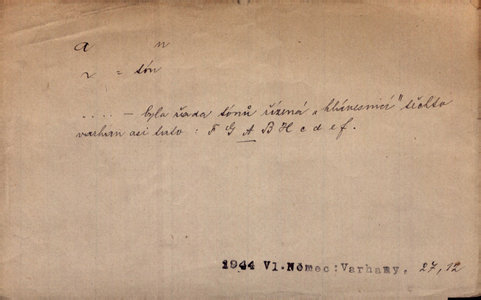 a n
v = tón
.... – byla řada tónů řízená „klávesnicí" těchto
varhan asi tato: F G A B H c d e f.
1944 Vl.Němec:Varhany, 27,12